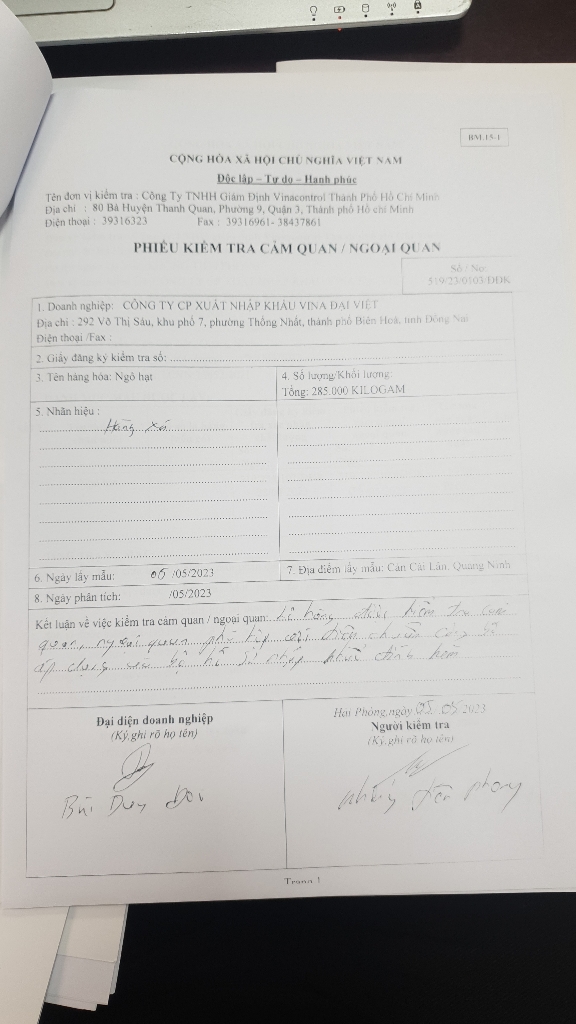 BM.15-1
CỘNG HÒA XÃ HỘI CHỦ NGHĨA VIỆT NAM
Độc lập – Tự do – Hạnh phúc
Tên đơn vị kiểm tra : Công Ty TNHH Giám Định Vinacontrol Thành Phố Hồ Chí Minh
Địa chỉ : 80 Bà Huyện Thanh Quan, Phường 9, Quận 3, Thành phố Hồ chí Minh
Điện thoại : 39316323 Fax : 39316961- 38437861
PHIẾU KIỂM TRA CẢM QUAN / NGOẠI QUAN
Số / No:
519/23/0103/ĐĐK
1. Doanh nghiệp: CÔNG TY CP XUẤT NHẬP KHẨU VINA ĐẠI VIỆT
Địa chỉ : 292 Võ Thị Sáu, khu phố 7, phường Thống Nhất, thành phố Biên Hoà, tỉnh Đồng Nai
Điện thoại /Fax :
2. Giấy đăng ký kiểm tra số:
3. Tên hàng hóa: Ngô hạt
4. Số lượng/Khối lượng:
Tổng: 285.000 KILOGAM
5. Nhãn hiệu :
Hàng xá
6. Ngày lấy mẫu: 05 /05/2023
7. Địa điểm lấy mẫu: Cảng Cái Lân, Quảng Ninh
8. Ngày phân tích: /05/2023
Kết luận về việc kiểm tra cảm quan / ngoại quan: Lô hàng được kiểm tra cảm
quan, ngoại quan phù hợp với tiêu chuẩn công bố
áp dụng và bộ hồ sơ nhập khẩu đính kèm
Hải Phòng,ngày 05 /05/2023
Đại diện doanh nghiệp
(Ký,ghi rõ họ tên)
Người kiểm tra
(Ký,ghi rõ họ tên)
Bùi Duy
phong
Trang 1